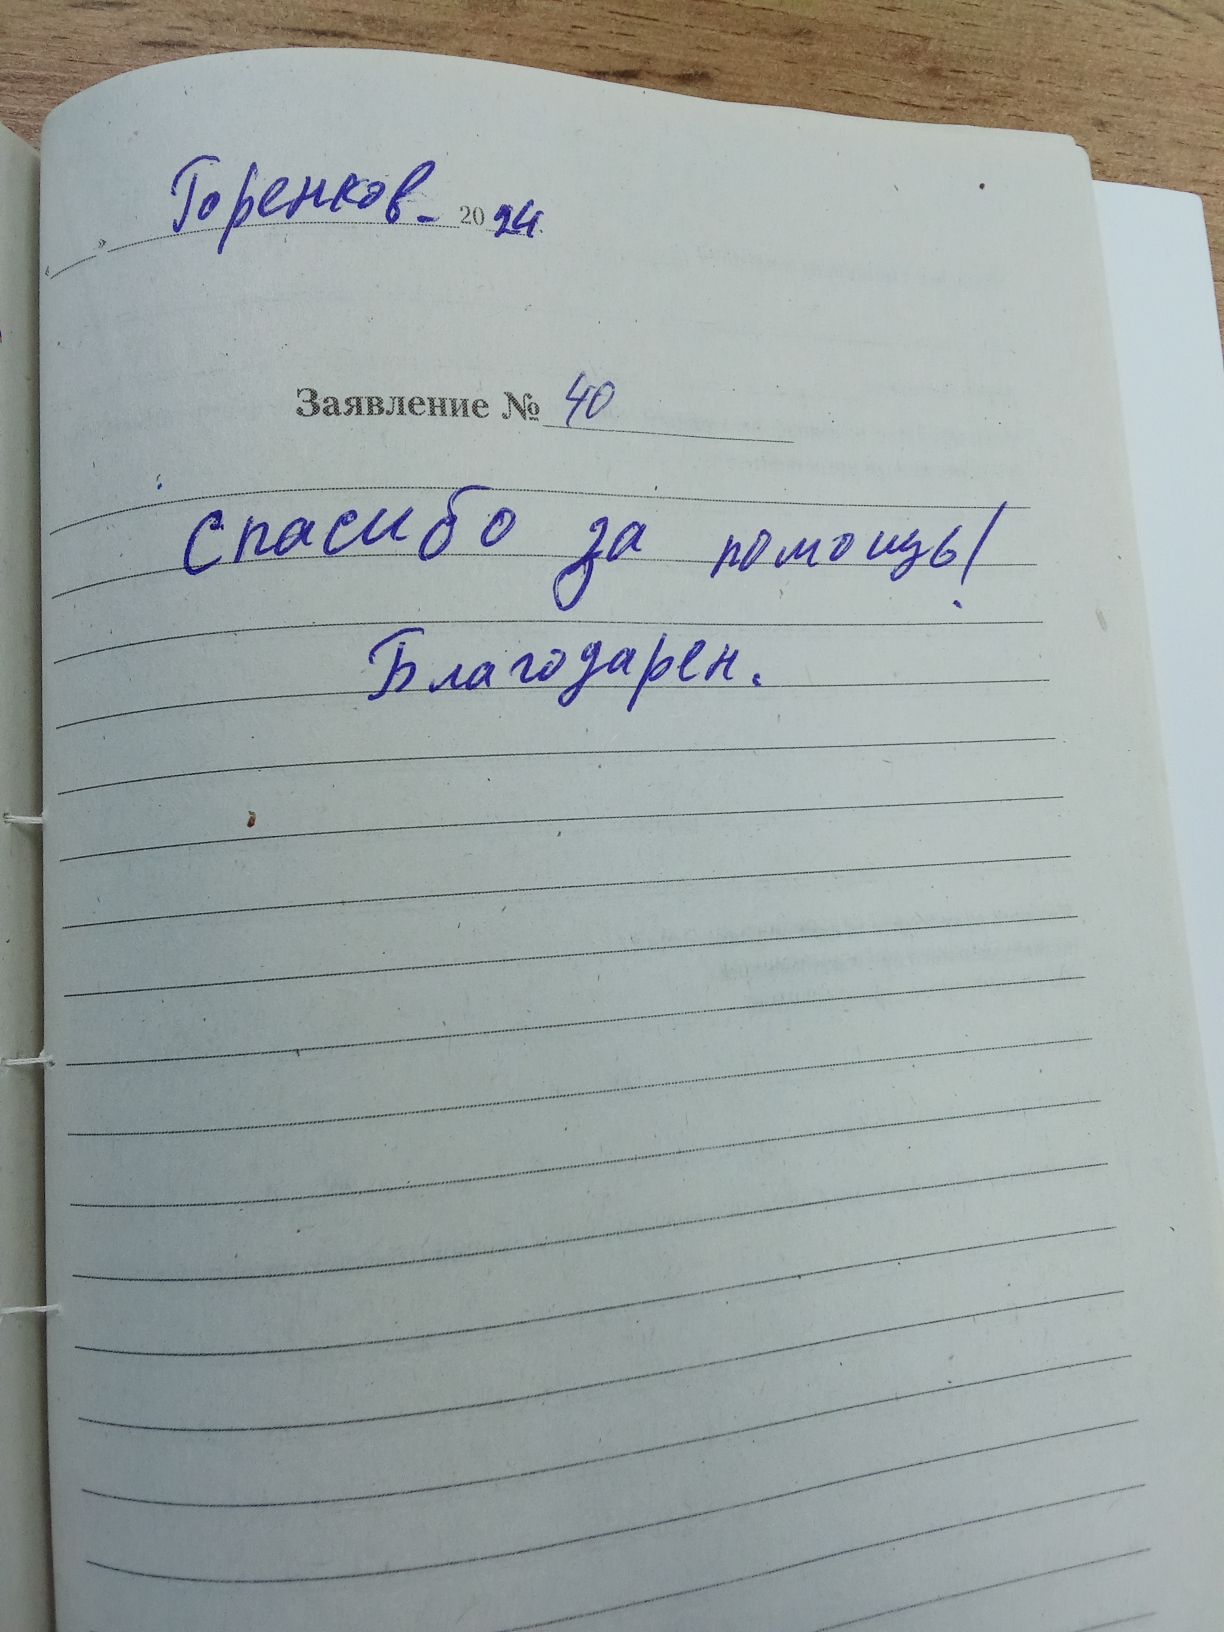 Горенков. 2024
Заявление № 40
Спасибо за помощь!
Благодарен.